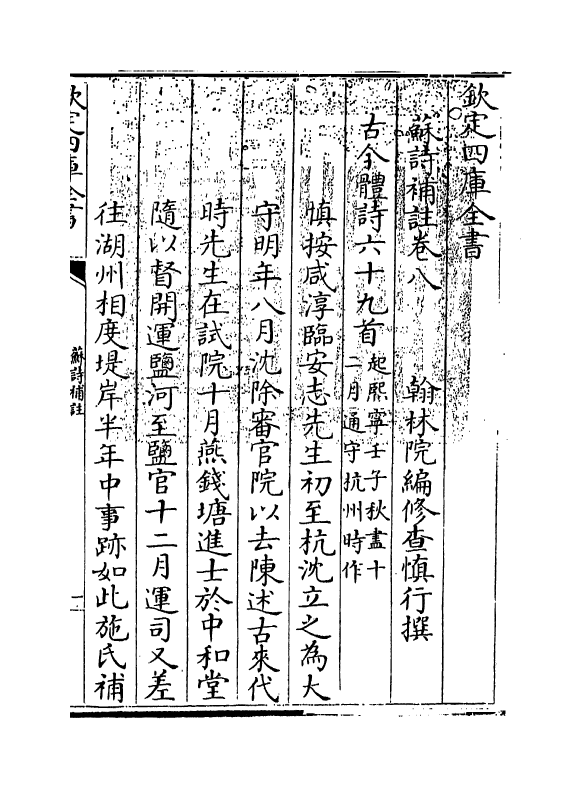 欽定四庫全書
蘇詩補註卷八
翰林院編修查慎行撰
古今體詩六十九首
起熙寧壬子秋盡十
二月通守杭州時作
慎按咸淳臨安志先生初至杭沈立之為大
守明年八月沈除審官院以去陳述古來代
時先生在試院十月燕錢塘進士於中和堂
隨以督開運鹽河至鹽官十二月運司又差
往湖州相度堤岸半年中事跡如此施氏補
欽定四庫全書
蘇詩補註
一